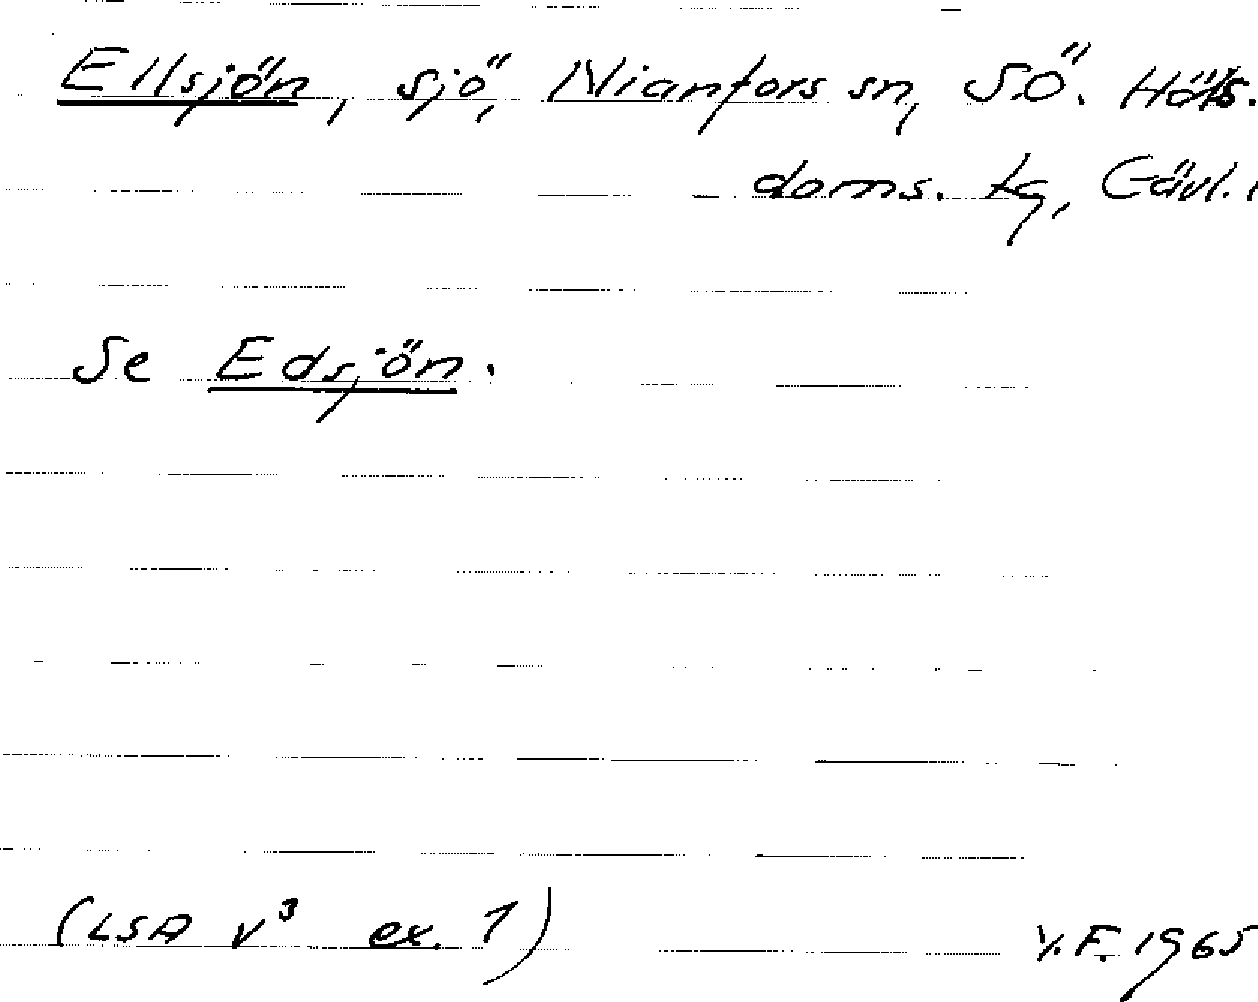 Ellsjön, sjö, Nianfors sn, SÖ. Häls.
doms. tg, Gävl. l
Se Edsjön.
(LSA V³ ex. 1) V.F. 1965